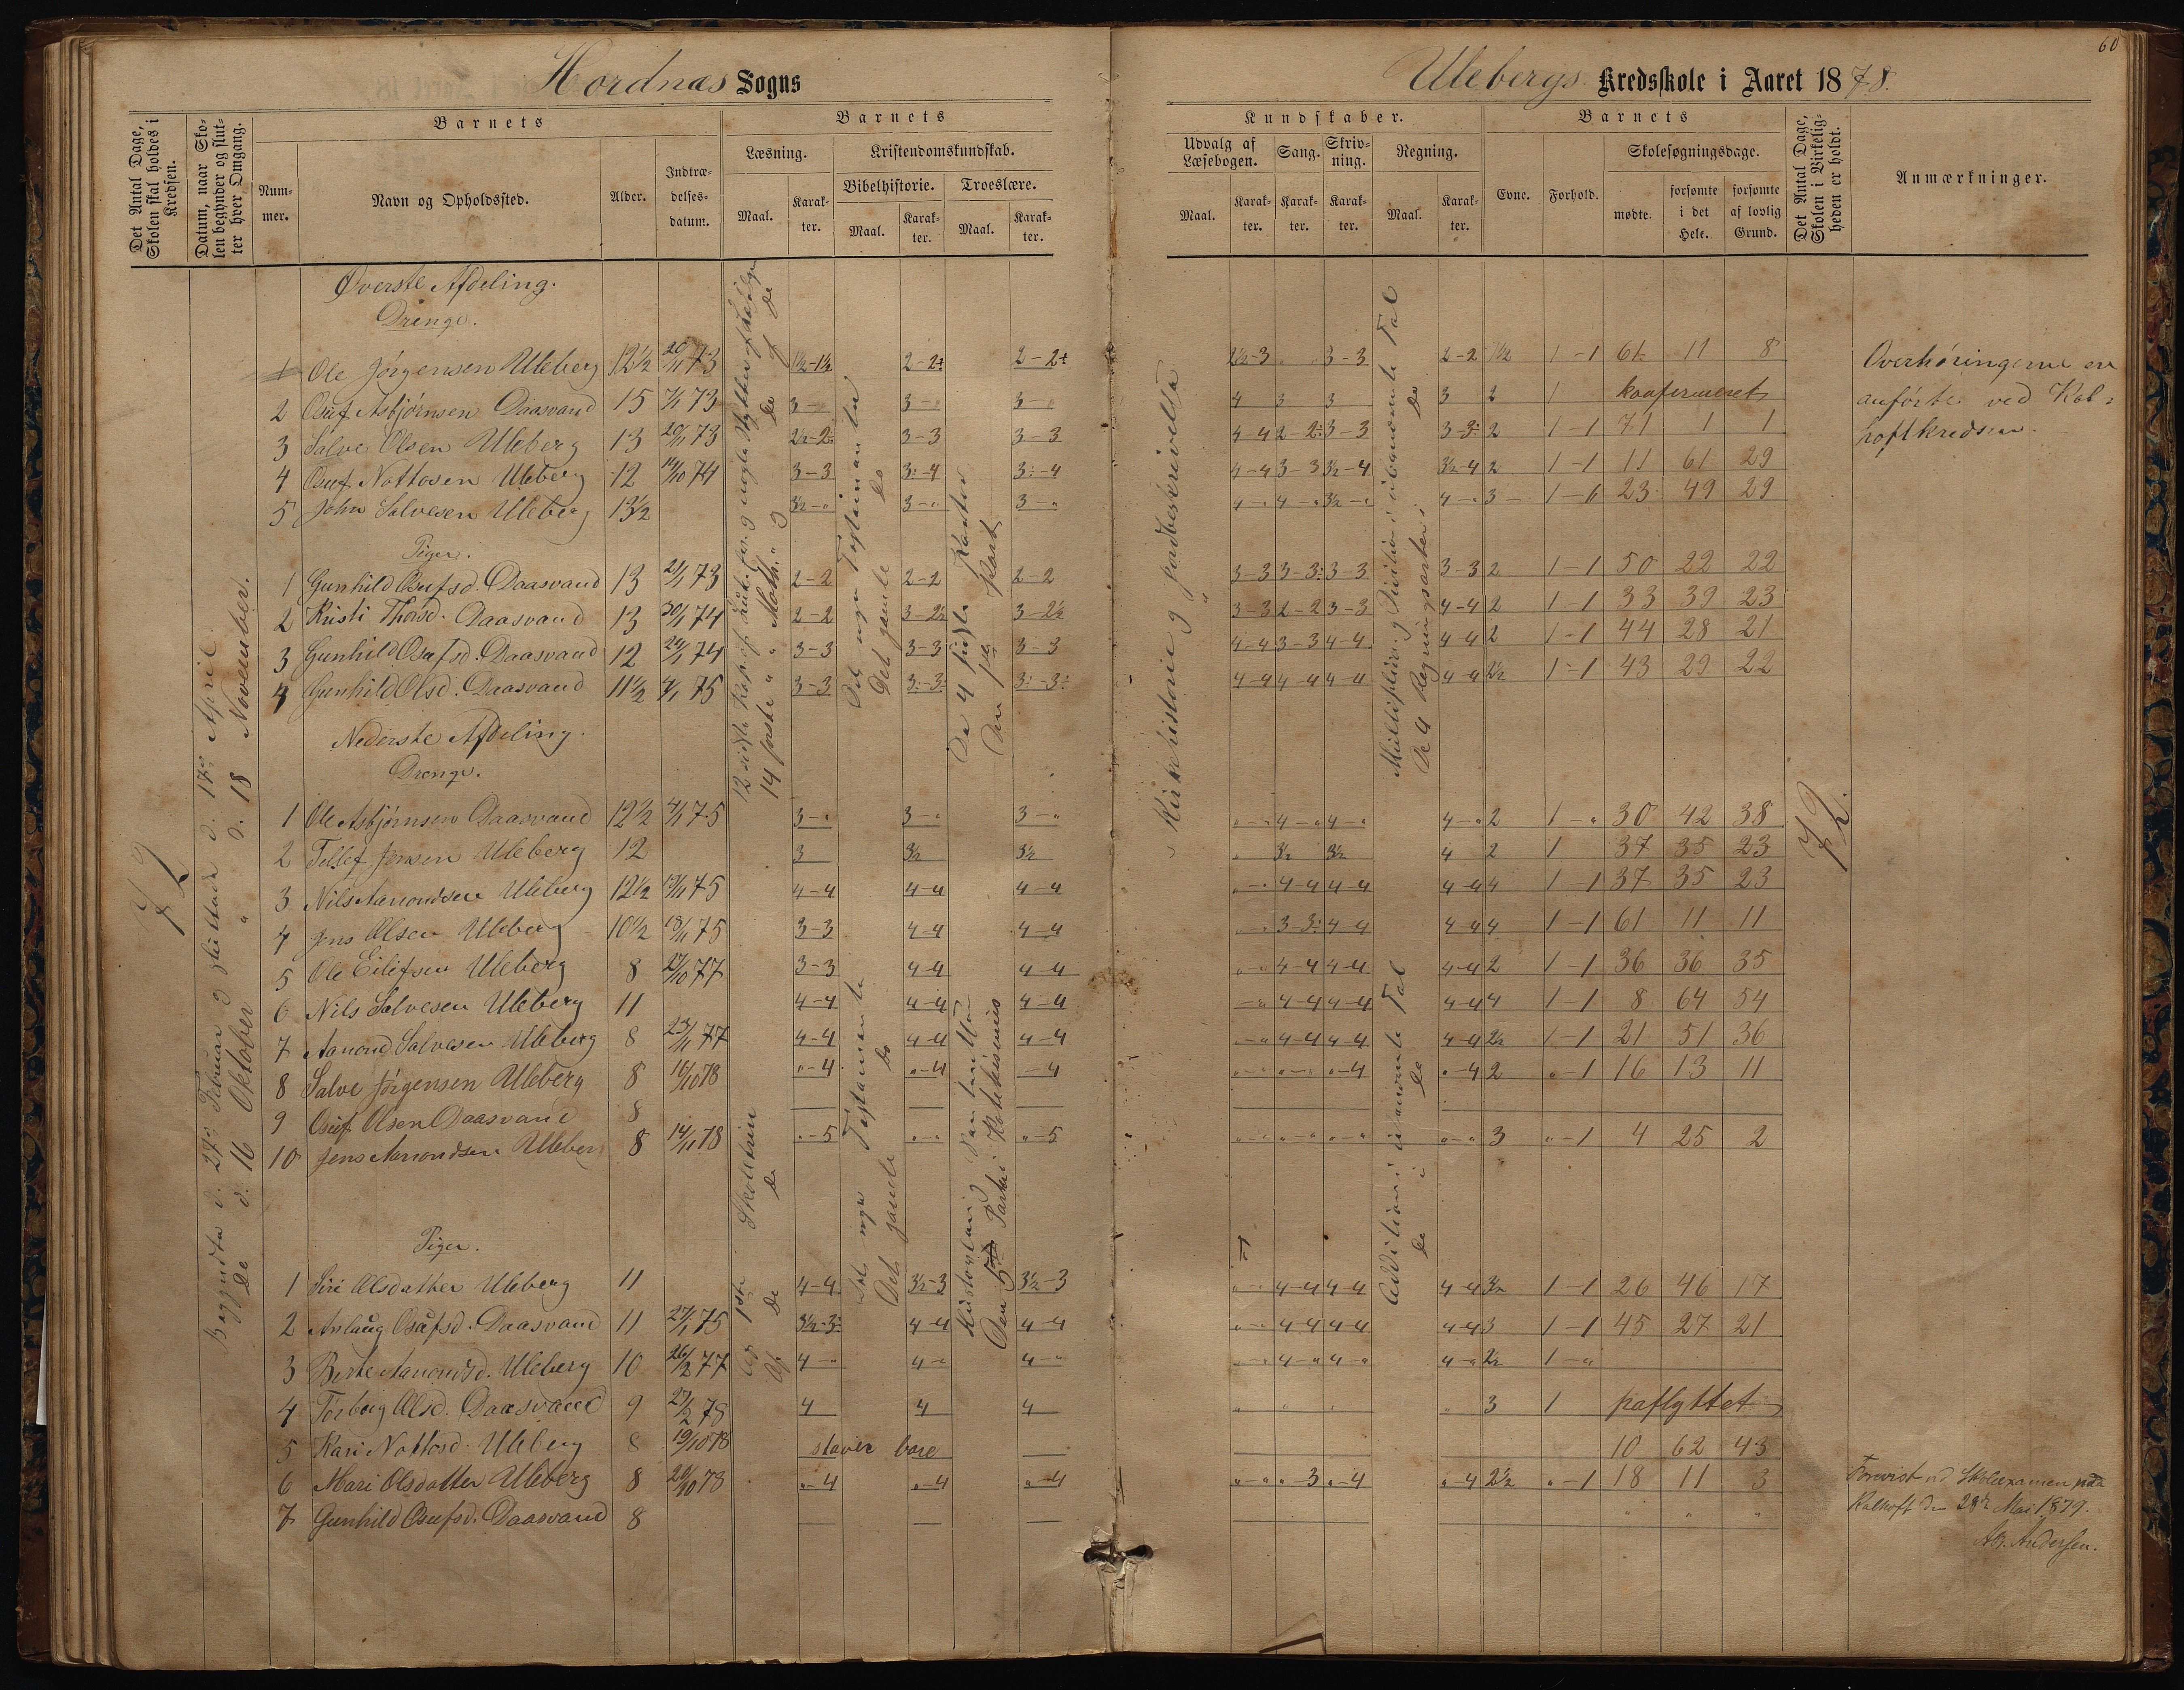 60
Hordnæs Sogns
Ulebergs Kredsskole i Aaret 1878.
Det Antal Dage, Skolen skal holdes i Kredsen.
Datum, naar Skolen begynder og slutter hver Omgang.
Barnets
Nummer.
Navn og Opholdssted.
Alder.
Indtrædelsesdatum.
Barnets
Læsning.
Maal.
Karakter.
Kristendomskundskab.
Bibelhistorie.
Maal.
Karakter.
Troeslære.
Maal.
Karakter.
Kundskaber.
Udvalg af Læsebogen.
Maal.
Karakter.
Sang.
Karakter.
Skrivning.
Karakter.
Regning.
Maal.
Karakter.
Barnets
Evne.
Forhold.
Skolesøgningsdage.
mødte.
forsømte i det Hele.
forsømte af lovlig Grund.
Det Antal Dage, Skolen i Virkeligheden er holdt.
Anmærkninger.
72
Begyndte d. 27de Februar og sluttede d. 17de April
De d. 16 Oktober " d. 18 November.
Øverste Afdeling.
Drenge.
1 Ole Jørgensen Uleberg 12½ 20/11 73 1½-1½ 2-2± 2-2± 2½-3 " " 3-3 2-2 1½ 1-1 61 11 8
2 Osuf Asbjørnsen Daasvand 15 7/1 73 3-" 3-" 3-" 4 3 3 3 2 1 konfirmeret
3 Salve Olsen Uleberg 13 20/11 73 2½-2: 3-3 3-3 4-4 2-2: 3-3 3-3: 2 1-1 71 1 1
4 Osuf Nottosen Uleberg 12 14/10 74 3-3 3:-4 3:-4 4-4 3-3 3½-4 3½-4 2 1-1 11 61 29
5 John Salvesen Uleberg 13½ 3½-" 3-" 3-" 4-" 4-" 3½-" 4-" 3 1-6 23 49 29
Piger.
1 Gunhild Osufsd. Daasvand 13 21/1 73 2-2 2-2 2-2 3-3 3-3: 3-3 3-3 2 1-1 50 22 22
2 Kristi Thorsd. Daasvand 13 30/1 74 2-2 3-2½ 3-2½ 3-3 2-2 3-3 4-4 2 1-1 33 39 23
3 Gunhild Osufsd. Daasvand 12 24/1 74 3-3 3-3 3-3 4-4 3-3 4-4 4-4 2 1-1 44 28 21
4 Gunhild Olsd. Daasvand 11½ 4/1 75 3-3 3:-3: 3:-3: 4-4 4-4 4-4 4-4 2½ 1-1 43 29 22
Nederste Afdeling.
Drenge.
1 Ole Asbjørnsen Daasvand 12½ 4/1 75 3-" 3-" 3-" "-" 4-" 4-" 4-" 2 1-" 30 42 38
2 Tellef Jensen Uleberg 12 3 3½ 3½ " 3½ 3½ 4 2 1 37 35 23
3 Nils Aanondsen Uleberg 12½ 13/11 75 4-4 4-4 4-4 "-" 4-4 4-4 4-4 4 1-1 37 35 23
4 Jens Olsen Uleberg 10½ 18/11 75 3-3 4-4 4-4 "-" 3-3: 4-4 4-4 4 1-1 61 11 11
5 Ole Eilefsen Uleberg 8 27/10 77 3-3 4-4 4-4 "-" 4-4 4-4 4-4 2 1-1 36 36 35
6 Nils Salvesen Uleberg 11 4-4 4-4 4-4 "-" 4-4 4-4 4-4 4 1-1 8 64 54
7 Aanond Salvesen Uleberg 8 23/11 77 4-4 4-4 4-4 "-" 4-4 4-4 4-4 2½ 1-1 21 51 36
8 Salve Jørgensen Uleberg 8 16/10 78 "-4 "-4 -4 "-" "-" "-4 "-4 2 "-1 16 13 11
9 Osuf Olsen Daasvand 8
10 Jens Aanondsen Uleberg 8 14/11 78 "-5 "-" "-5 "-" "-" "-" "-" 3 "-1 4 25 2
Piger.
1 Siri Olsdatter Uleberg 11 4-4 3½-3 3½-3 "-" 4-4 4-4 4-4 3½ 1-1 26 46 17
2 Anlaug Osufsd. Daasvand 11 27/1 75 3½-3: 4-4 4-4 "-" 4-4 4-4 4-4 3 1-1 45 27 21
3 Berte Aanondsd. Uleberg 10 26/2 77 4-" 4-" 4-" "-" 4-" 4-" 4-" 2½ 1-"
4 Torborg Olsd. Daasvand 9 27/2 78 4 4 4 " " " " 3 1 paflyttet
5 Kari Nottosd. Uleberg 8 19/10 78 staver bare 10 62 43
6 Mari Olsdatter Uleberg 8 20/10 78 "-4 "-4 "-4 "-" "-3 "-4 "-4 2½ "-1 18 11 3
7 Gunhild Osufsd. Daasvand 8 " " "
14 første " " Math.
Det nye Testamente
Det gamle do
De 4 sidste Parter
Den 1ste Part
Kirkehistorie og Jordbeskrivelse
Multiplik. og Division i ubenævnte Tal
De 4 Regningsarter i do
Skoletrin
Af 1ste do
Det nye Testamente
Det gamle do
Den 5te Part i Katekismus
Addition i ubenævnte Tal
do i do
72.
Overhøringerne er
anførte ved Kal-
hoftkredsen.
Forevist ved Skoleexamen paa
Kalhoft den 28de Mai 1879.
Ab. Andersen.